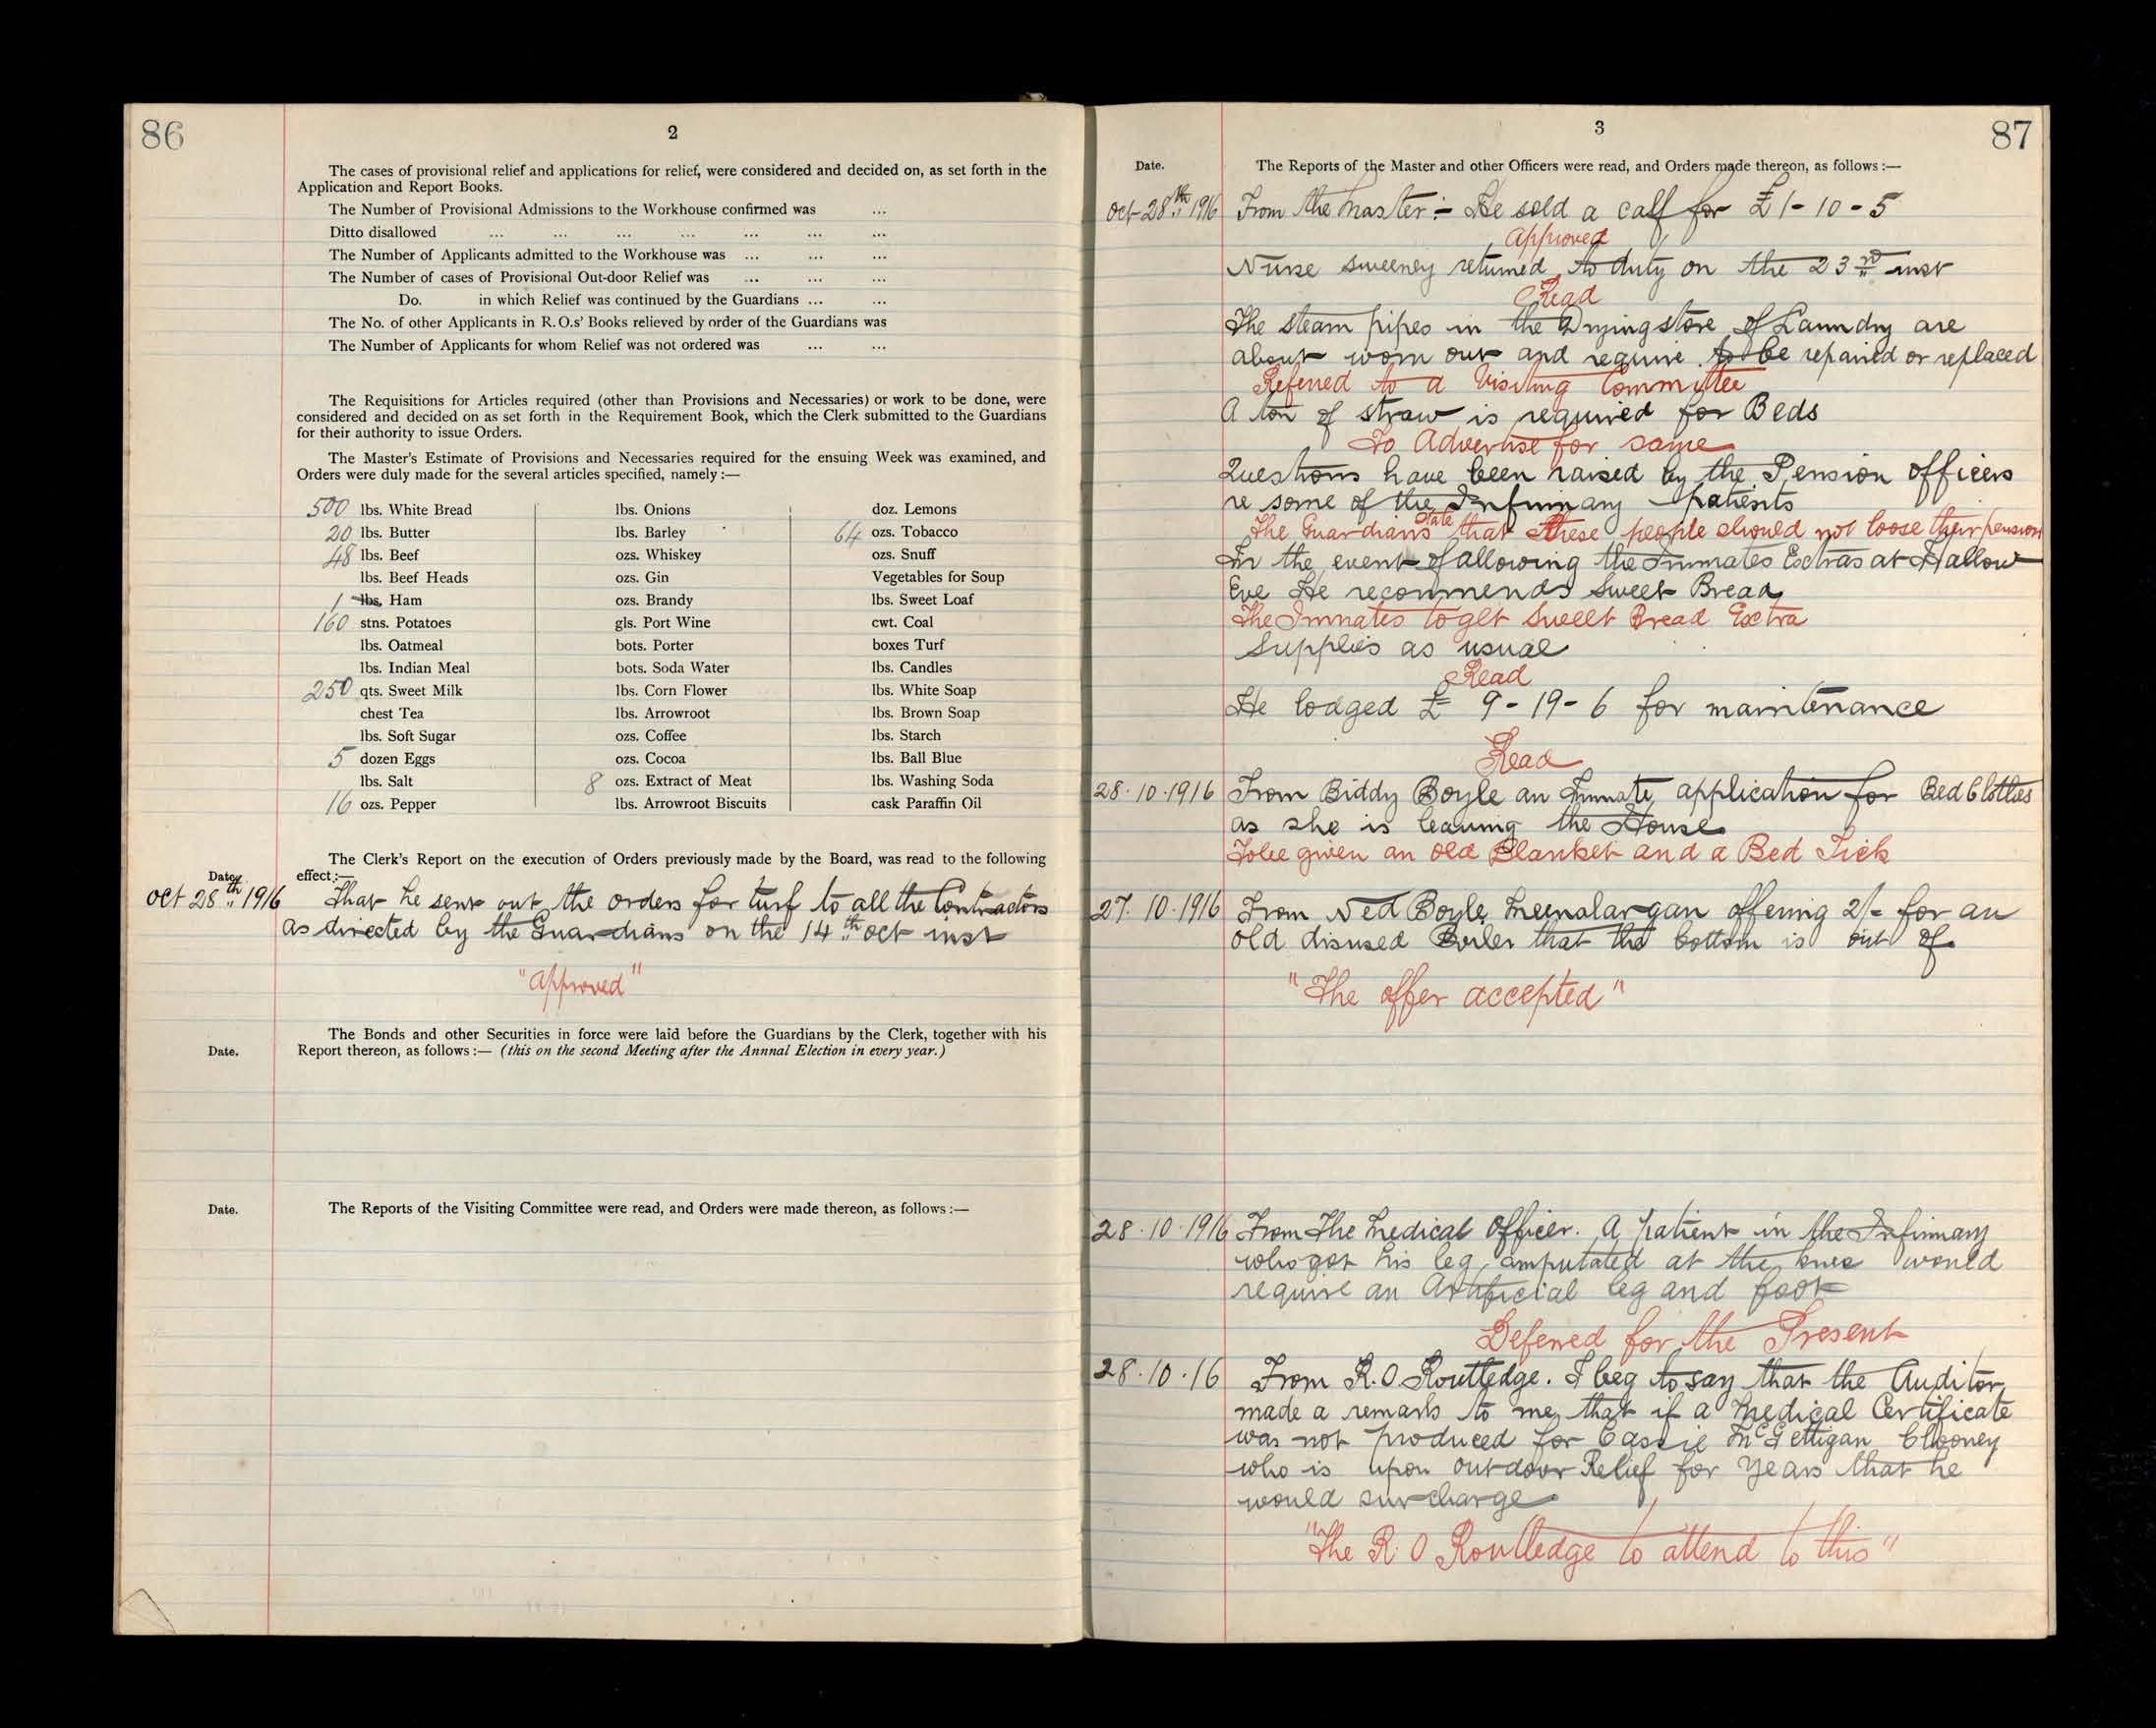 86
2
The cases of provisional relief and applications for relief, were considered and decided on, as set forth in the
Application and Report Books.
The Number of Provisional Admissions to the Workhouse confirmed was ...
Ditto disallowed ... ... ... ... ... ... ...
The Number of Applicants admitted to the Workhouse was ... ... ...
The Number of cases of Provisional Out-door Relief was ... ... ...
Do. in which Relief was continued by the Guardians ... ...
The No. of other Applicants in R.O.s' Books relieved by order of the Guardians was
The Number of Applicants for whom Relief was not ordered was ... ...
The Requisitions for Articles required (other than Provisions and Necessaries) or work to be done, were
considered and decided on as set forth in the Requirement Book, which the Clerk submitted to the Guardians
for their authority to issue Orders.
The Master's Estimate of Provisions and Necessaries required for the ensuing Week was examined, and
Orders were duly made for the several articles specified, namely :—
500 lbs. White Bread
20 lbs. Butter
48 lbs. Beef
lbs. Beef Heads
1 lbs. Ham
160 stns. Potatoes
lbs. Oatmeal
lbs. Indian Meal
250 qts. Sweet Milk
chest Tea
lbs. Soft Sugar
5 dozen Eggs
lbs. Salt
16 ozs. Pepper
lbs. Onions
lbs. Barley
ozs. Whiskey
ozs. Gin
ozs. Brandy
gls. Port Wine
bots. Porter
bots. Soda Water
lbs. Corn Flower
lbs. Arrowroot
ozs. Coffee
ozs. Cocoa
8 ozs. Extract of Meat
lbs. Arrowroot Biscuits
doz. Lemons
64 ozs. Tobacco
ozs. Snuff
Vegetables for Soup
lbs. Sweet Loaf
cwt. Coal
boxes Turf
lbs. Candles
lbs. White Soap
lbs. Brown Soap
lbs. Starch
lbs. Ball Blue
lbs. Washing Soda
cask Paraffin Oil
The Clerk's Report on the execution of Orders previously made by the Board, was read to the following
Date. effect :—
Oct 28th 1916 That he sent out the orders for turf to all the Contractors
as directed by the Guardians on the 14th Oct inst
"Approved"
The Bonds and other Securities in force were laid before the Guardians by the Clerk, together with his
Date. Report thereon, as follows :— (this on the second Meeting after the Annnal Election in every year.)
Date. The Reports of the Visiting Committee were read, and Orders were made thereon, as follows :—
3
87
Date. The Reports of the Master and other Officers were read, and Orders made thereon, as follows :—
Oct 28th 1916 From the Master :- He sold a calf for £1-10-5
Approved
Nurse Sweeney returned to duty on the 23rd inst
Read
The steam pipes in the Drying store of Laundry are
about worn out and require to be repaired or replaced
Referred to a Visiting Committee
A ton of straw is required for Beds
To Advertise for same
Questions have been raised by the Pension Officers
re some of the Infirmary patients
The Guardians state that these people should not loose their pension
In the event of allowing the Inmates Extras at Hallow
Eve He recommends Sweet Bread
The Inmates to get Sweet Bread Extra
Supplies as usual
Read
He lodged £ 9-19-6 for maintenance
Read
28.10.1916 From Biddy Boyle an Inmate application for Bed Clothes
as she is leaving the House
To be given an old Blanket and a Bed Tick
27.10.1916 From Ned Boyle Meenalargan offering 2/- for an
old disused Boiler that the bottom is out of
"The offer accepted"
28.10.1916 From The Medical Officer. A patient in the Infirmary
who got his leg amputated at the knee would
require an Artificial leg and foot
Deferred for the Present
28.10.16 From R.O. Routledge. I beg to say that the Auditor
made a remark to me that if a Medical Certificate
was not produced for Cassie McGettigan Clooney
who is upon outdoor Relief for years that he
would surcharge
"The R.O Routledge to attend to this"